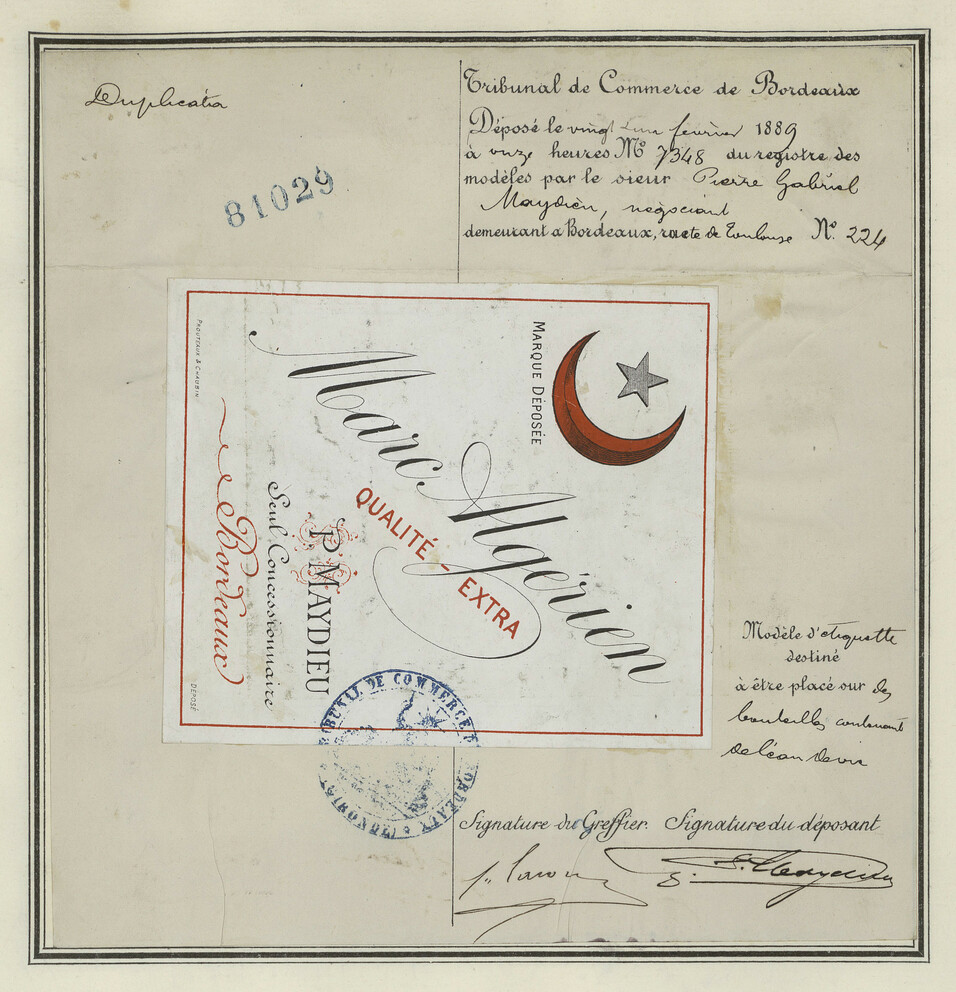 Duplicata
81029
Tribunal de Commerce de Bordeaux
Déposé le vingt un février 1889
à onze heures No 7348 du registre des
modèles par le sieur Pierre Gabriel
Maydieu, négociant
demeurant a Bordeaux, route de Toulouse No. 224
MARQUE DÉPOSÉE
Marc Algérien
QUALITÉ - EXTRA
P. MAYDIEU
Seul Concessionnaire
Bordeaux
PROUTEAUX & CHAUBIN
DÉPOSÉ
TRIBUNAL DE COMMERCE BORDEAUX (GIRONDE)
Modèle d'étiquette
destiné
à être placé sur des
bouteilles contenant
de l'eau de vie
Signature du Greffier. Signature du déposant